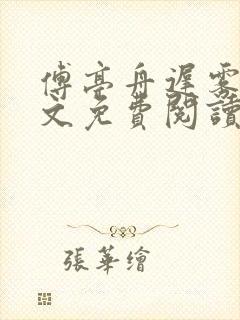 傅亭舟遲霧
文免費閱讀
張華繪